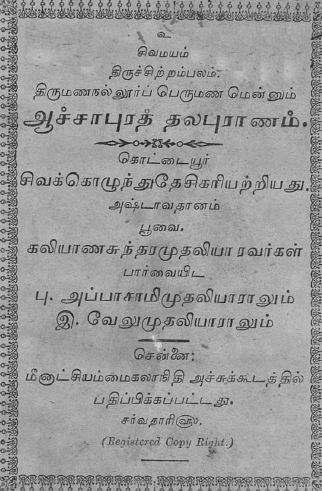 உ
சிவமயம்
திருச்சிற்றம்பலம்.
திருமணநல்லூர்ப் பெருமண மென்னும்
ஆச்சாபுரத் தலபுராணம்.
கொட்டையூர்
சிவக்கொழுந்துதேசிகரியற்றியது.
அஷ்டாவதானம்
பூவை.
கலியாணசுந்தரமுதலியா ரவர்கள்
பார்வையிட
பு. அப்பாசாமிமுதலியாராலும்
இ. வேலுமுதலியாராலும்
சென்னை:
மீனாட்சியம்மைகலாநிதி அச்சுக்கூடத்தில்
பதிப்பிக்கப்பட்டது.
சர்வதாரி௵.
(Registered Copy Right.)